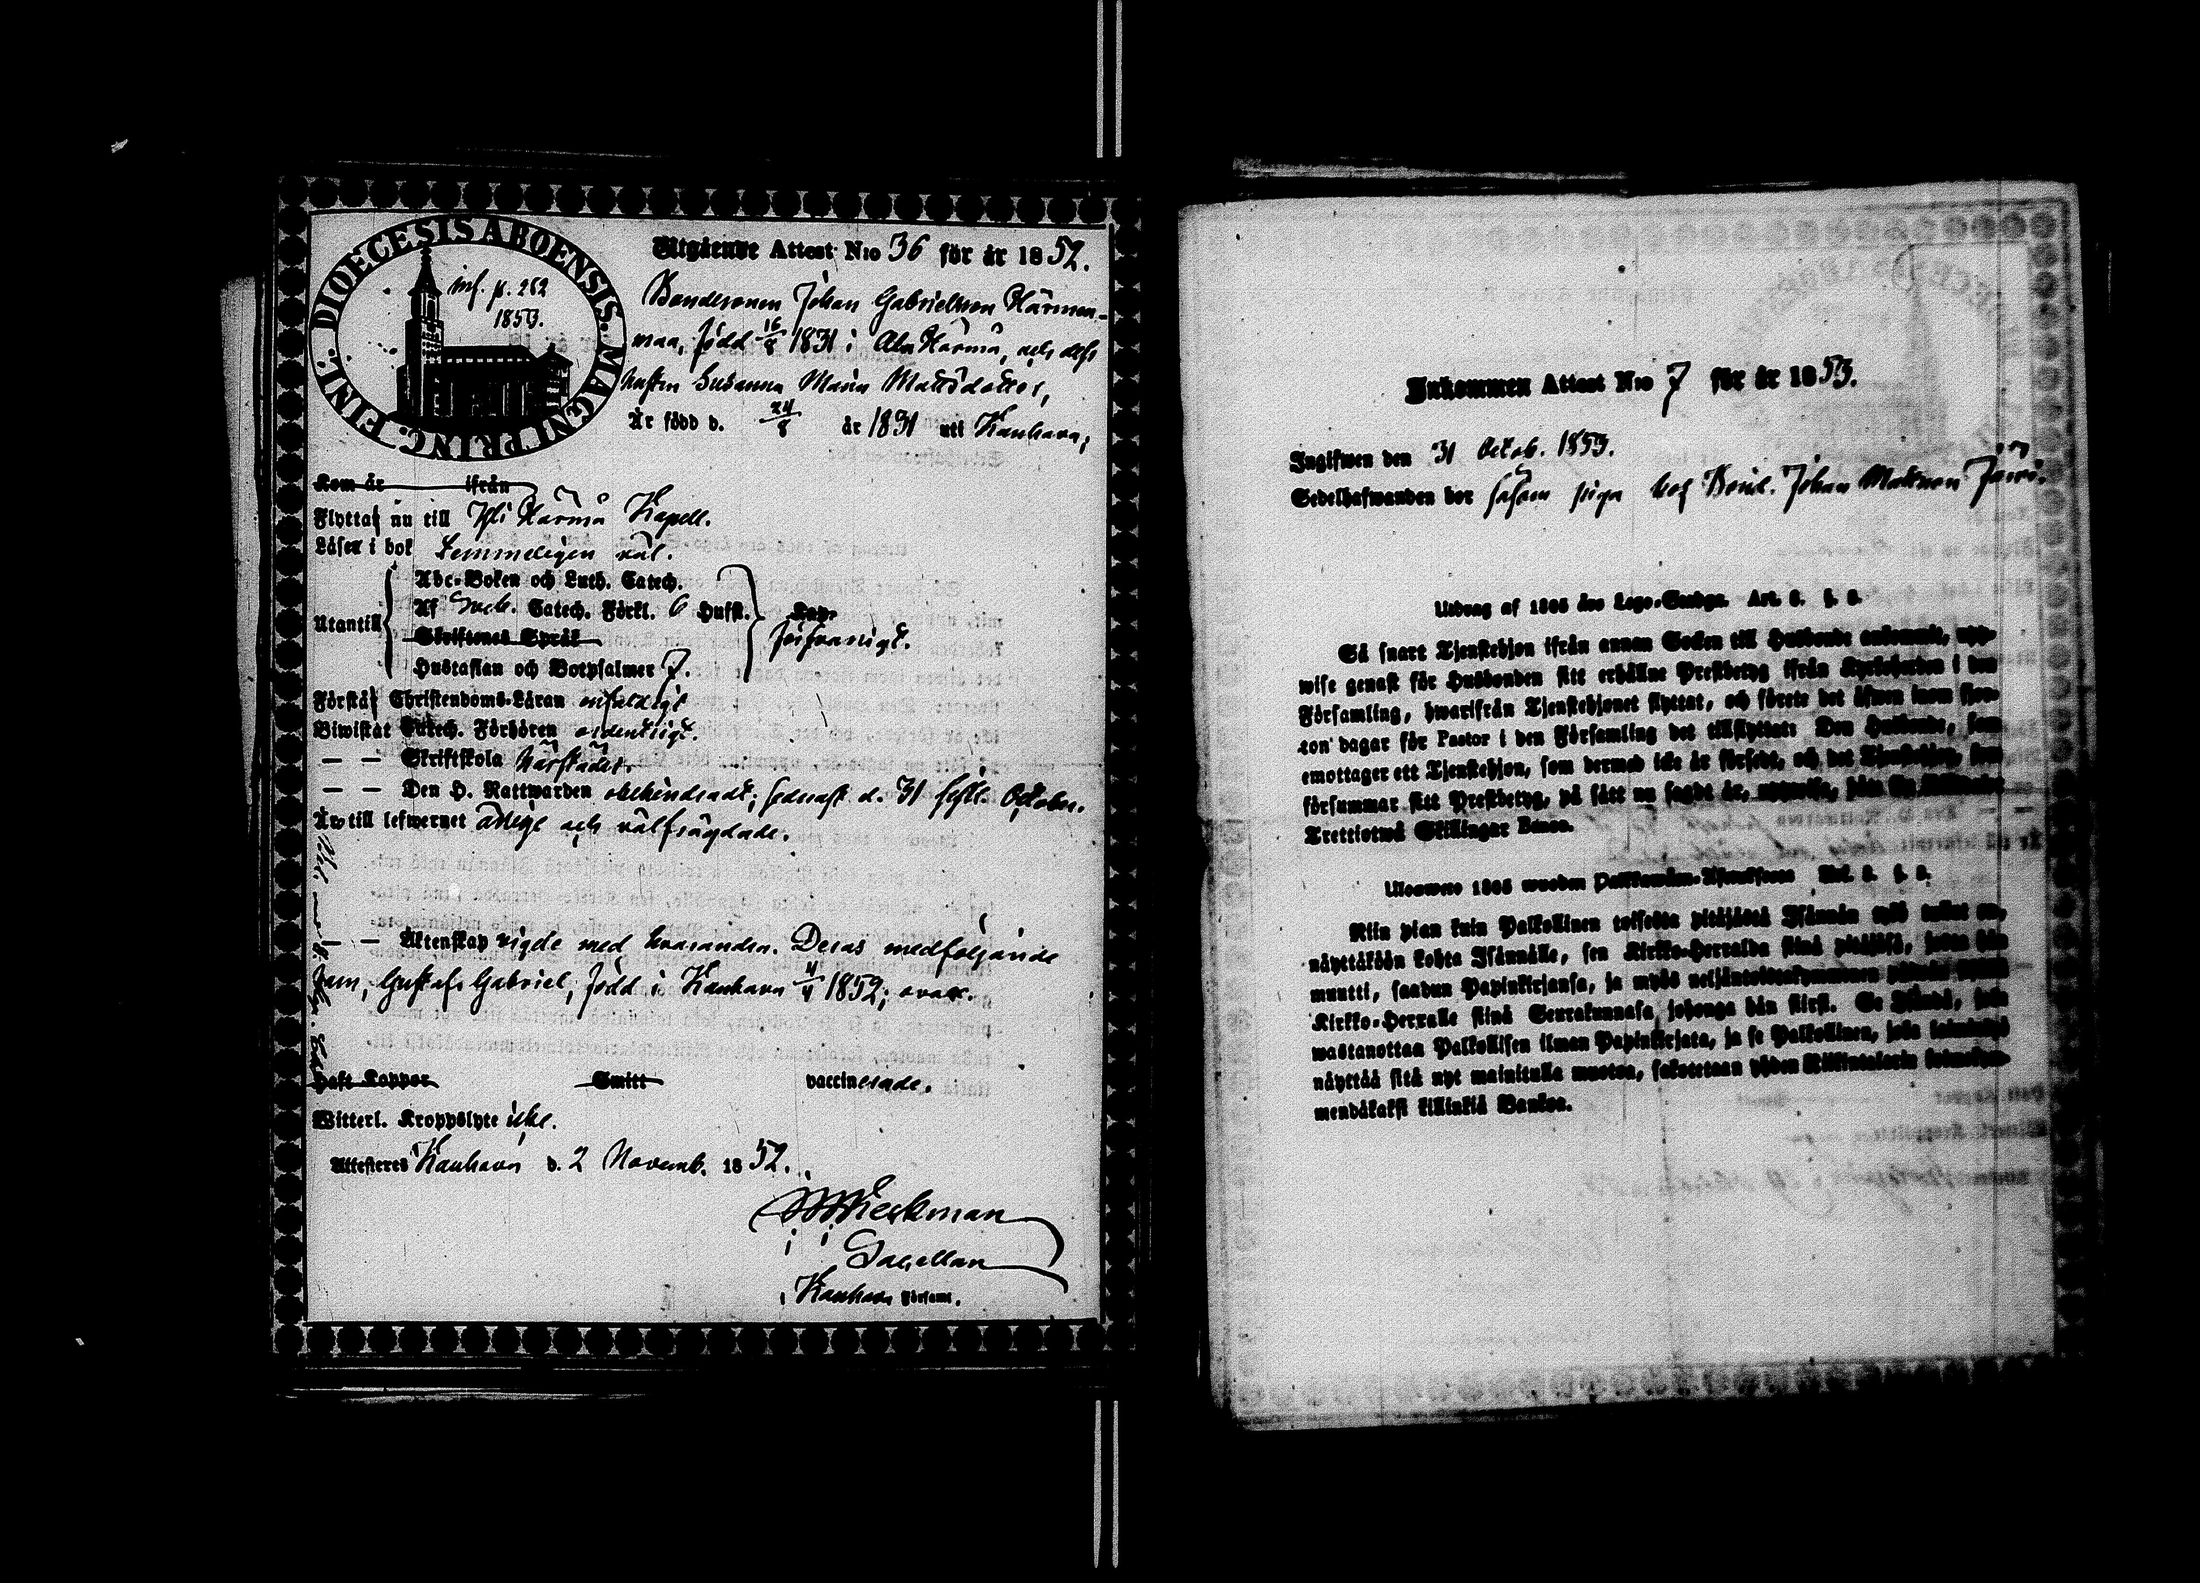 DIOECESIS ABOENSIS. MAGNI PRINC. FINL.
inf. p. 262
1853.
Utgående Attest N:o 36 för år 1852.
Bondesonen Johan Gabrielsson Härmän-
maa, född 16/8 1831 i Ala Härmä, och dess
hustru Susanna Maria Mattsdotter,
Är född d. 24/8 år 1831 uti Kauhava,
Kom år ifrån
Flytta nu till Yli Härmä Kapell.
Läser i bok temmeligen väl.
Utantill
Abc-Boken och Luth. Catech.
Af Sveb. Catech. Förkl. 6 Hufst.
Skriftenes Språk
Hustaflan och Botpsalmer 7.
försvarligt.
Förstå Christendoms-Läran enfaldigt
Biwistat Catech. Förhören ordentligt.
— — Skriftskola
— — Den H. Nattwarden obehindradt; senast d. 31 sistl. October.
Är till lefwernet ärlige och välfrägdade.
— — Äktenskap vigde med hvarandra. Deras medföljande
Son, Gustaf Gabriel, född i Kauhava 4/4 1852; ovacc.
Haft Koppor Smitt vaccinerade.
Witterl. Kroppslyte icke.
Attesteres Kauhava d. 2 Novemb. 1852.
Sacellan
i Kauhava Församl.
Inkommen Attest N:o 7 för år 1853.
Ingifwen den 31 Octob. 1853.
Sedelhafwanden bor såsom piga hos Bond. Johan Mattsson
Utdrag af 1805 års Lego-Stadga. Art. 3. §. 8.
Så snart Tjenstehjon ifrån annan Socken till Husbonde ankommit, upp-
wise genast för Husbonden sitt erhållne Prestbetyg ifrån Kyrkoherden i den
Församling, hwarifrån Tjenstehjonet flyttat, och förete det äfwen inom fjor-
ton dagar för Pastor i den Församling det tillflyttat: Den Husbonde, som
emottager ett Tjenstehjon, som dermed icke är försedt, och det Tjenstehjon, som
försummar sitt Prestbetyg, på sätt nu sagdt är, uppwisa,
Trettiotwå Skillingar Banco.
Ulosweto 1805 wuoden Palkkawäen-Asetuksesta Art. 3. §. 8.
Niin pian kuin Palkollinen toisesta pitäjästä Isännän tykö tullut on,
näyttäköön kohta Isännälle, sen Kirkko-Herralda siinä pitäjäsä, josta hän
muutti, saadun Papinkirjansa, ja myös neljäntoistakymmenen päiwän
Kirkko-Herralle siinä Seurakunnasa johonga hän siirsi. Se Isändä, joka
wastanottaa Palkollisen ilman Papinkirjata, ja se Palkollinen, joka
näyttää sitä nyt mainitulla muotoa, sakotetaan yhden Riikintalarin
mendäkaksi killinkiä Bankoa.